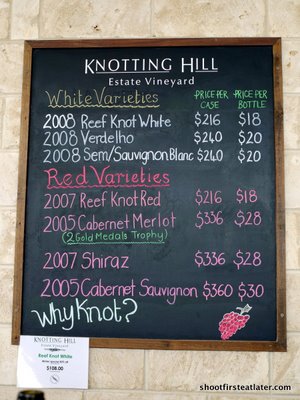 KNOTTING HILL
Estate Vineyard
White Varieties PRICE PER CASE PRICE PER BOTTLE
2008 Reef Knot White $216 $18
2008 Verdelho $240 $20
2008 Sem/Sauvignon Blanc $240 $20
Red Varieties
2007 Reef Knot Red $216 $18
2005 Cabernet Merlot $336 $28
(2 Gold Medals Trophy)
2007 Shiraz $336 $28
2005 Cabernet Sauvignon $360 $30
Why Knot?
KNOTTING HILL
Reef Knot White
$108.00
shootfirsteatlater.com